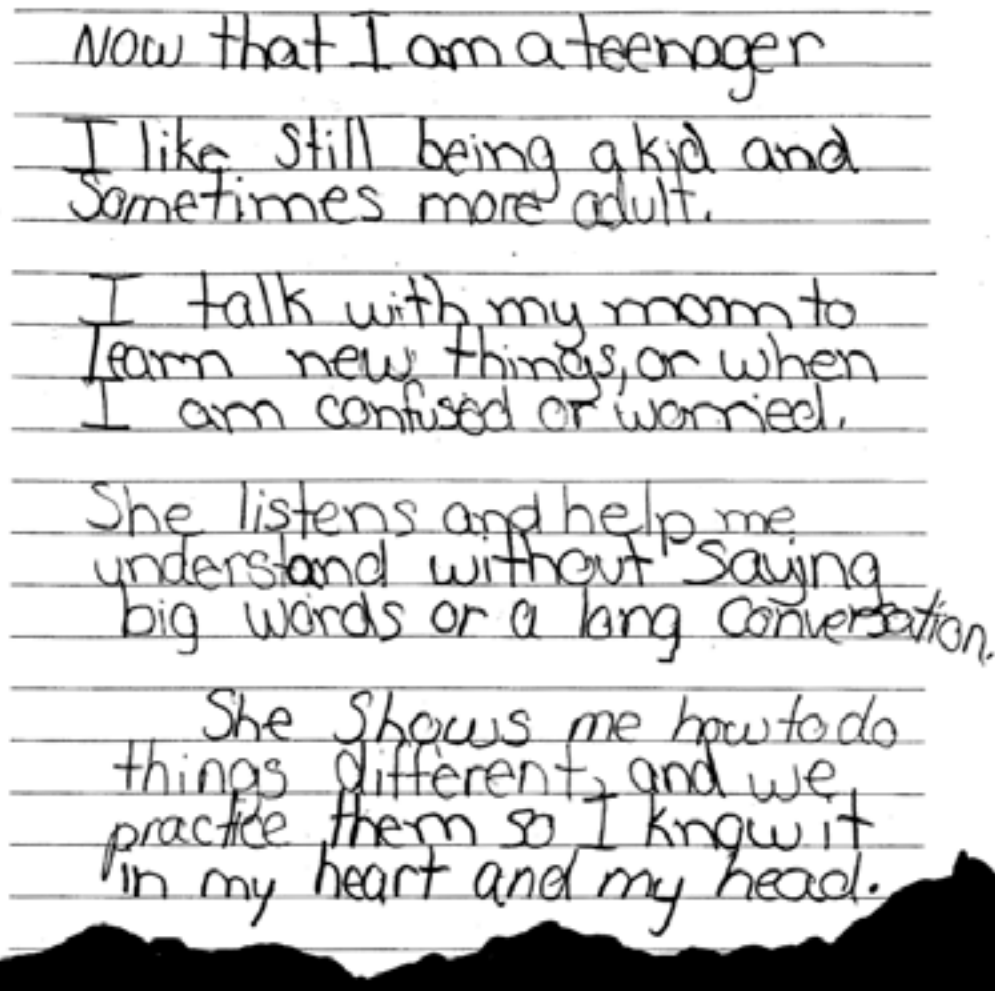 Now that I am a teenager
I like still being a kid and
Sometimes more adult.
I talk with my mom to
learn new things, or when
I am confused or worried.
She listens and help me
understand without saying
big words or a long conversation.
She shows me how to do
things different, and we
practice them so I know it
in my heart and my head.